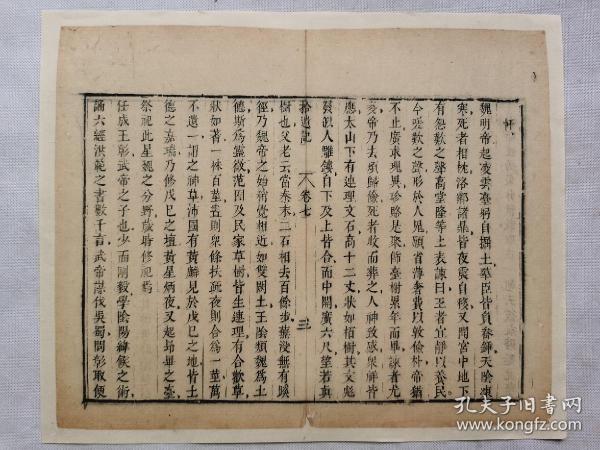 魏明帝起凌雲臺躬自掘土羣臣皆負畚鍤天陰凍
寒死者相枕洛鄴諸鼎皆夜震自移又聞宮中地下
有怨歎之聲高堂隆等上表諫曰王者宜靜以養民
今嗟歎之聲形於人鬼願省薄奢費以敦儉朴帝猶
不止廣求瑰異珍賂是聚飾臺榭累年而畢諫者尤
多帝乃去煩歸儉死者收而葬之人神致感衆祥皆
應太山下有連理文石高十二丈狀如栢樹其文彪
發似人雕鏤自下及上皆合而中開廣六尺望若眞
拾遺記
卷七
三
樹也父老云當秦末二石相去百餘步蕪沒無有蹊
徑乃魏帝之始稍覺相近如雙闕土王陰類魏爲土
德斯爲靈徵苑囿及民家草樹皆生連理有合歡草
狀如蓍一株百莖晝則衆條扶疏夜則合爲一莖萬
不遺一謂之神草沛國有黃麟見於戊己之地皆土
德之嘉瑞乃修戊己之壇黃星炳夜又起昴畢之臺
祭祀此星魏之分野歲時修祀焉
任城王彰武帝之子也少而剛毅學陰陽緯候之術
誦六經洪範之書數千言武帝謀伐吳蜀問彰取便
孔夫子旧書网